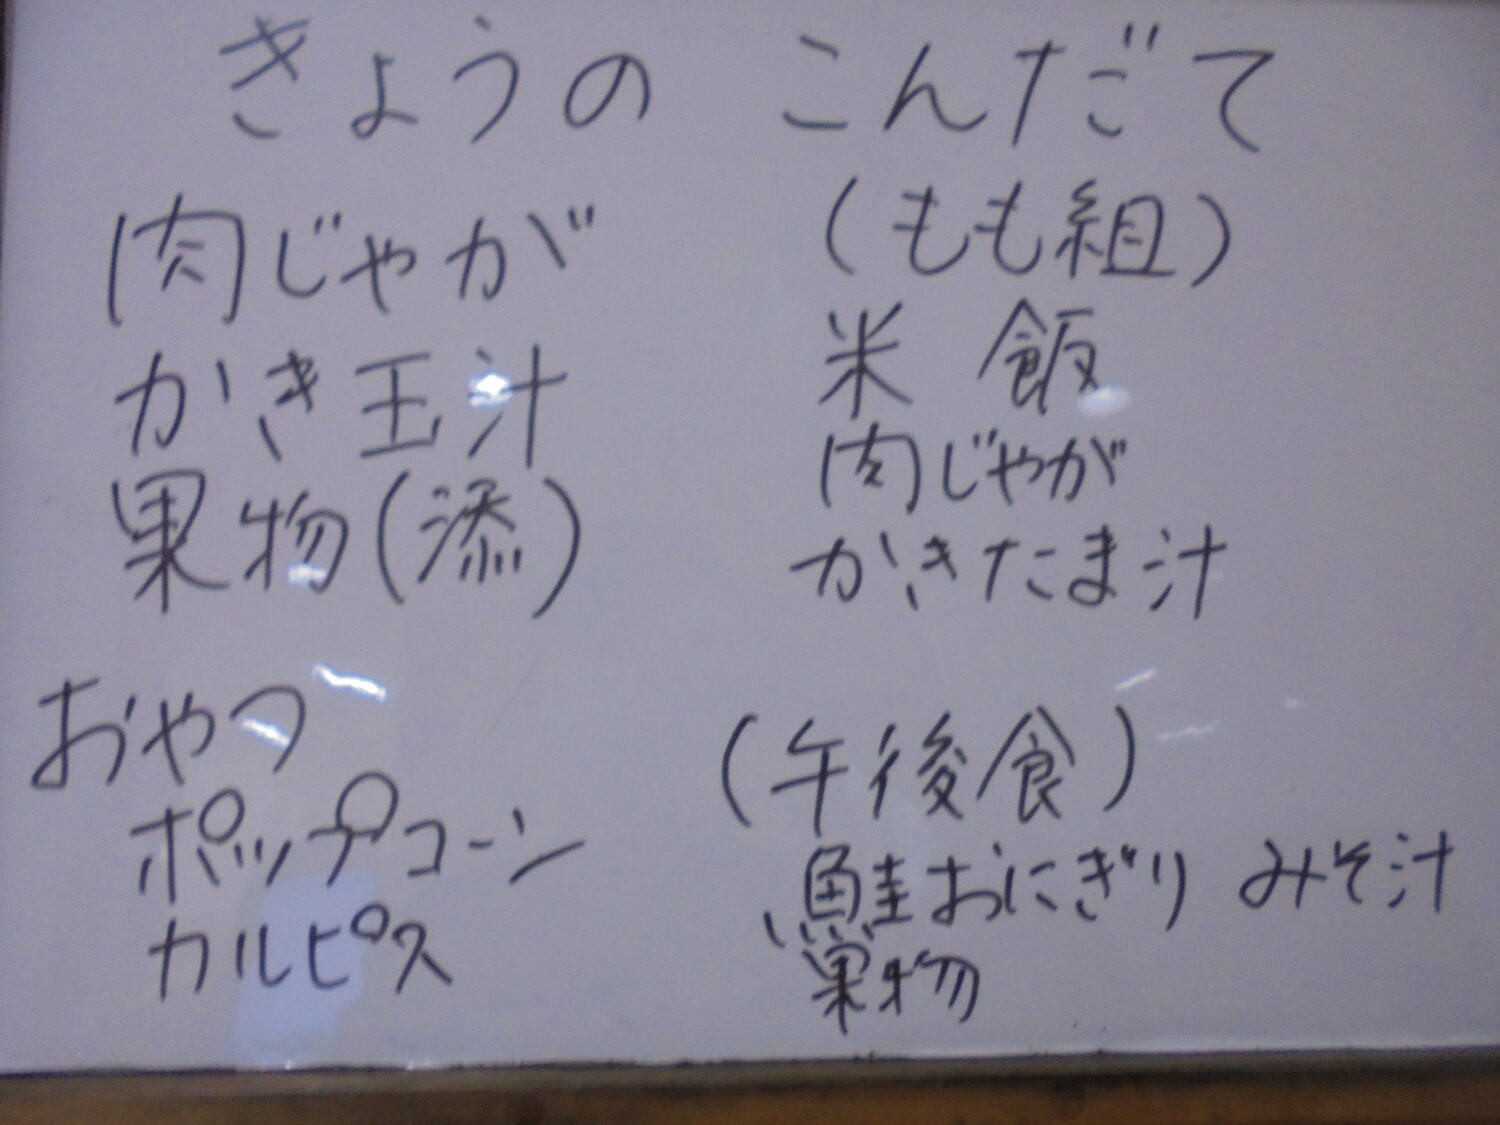 きょうの こんだて
肉じゃが
かき玉汁
果物(添)
おやつ
ポップコーン
カルピス
(もも組)
米飯
肉じゃが
かきたま汁
(午後食)
鮭おにぎり みそ汁
果物